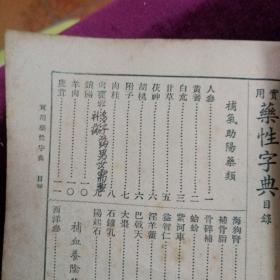 實用藥性字典 目錄
補氣助陽藥類
人參 一
黃耆 二
白朮 三
甘草 五
茯神 六
胡桃 六
附子 七
肉桂 八
鎖陽 一〇
羊肉 一一
鹿茸 一一
海狗腎
補骨脂
骨碎補
蛤蚧
紫河車
益智仁
淫羊藿
巴戟天
大棗
石鐘乳
陽起石
補血養陰
西洋參
實用藥性字典 目錄